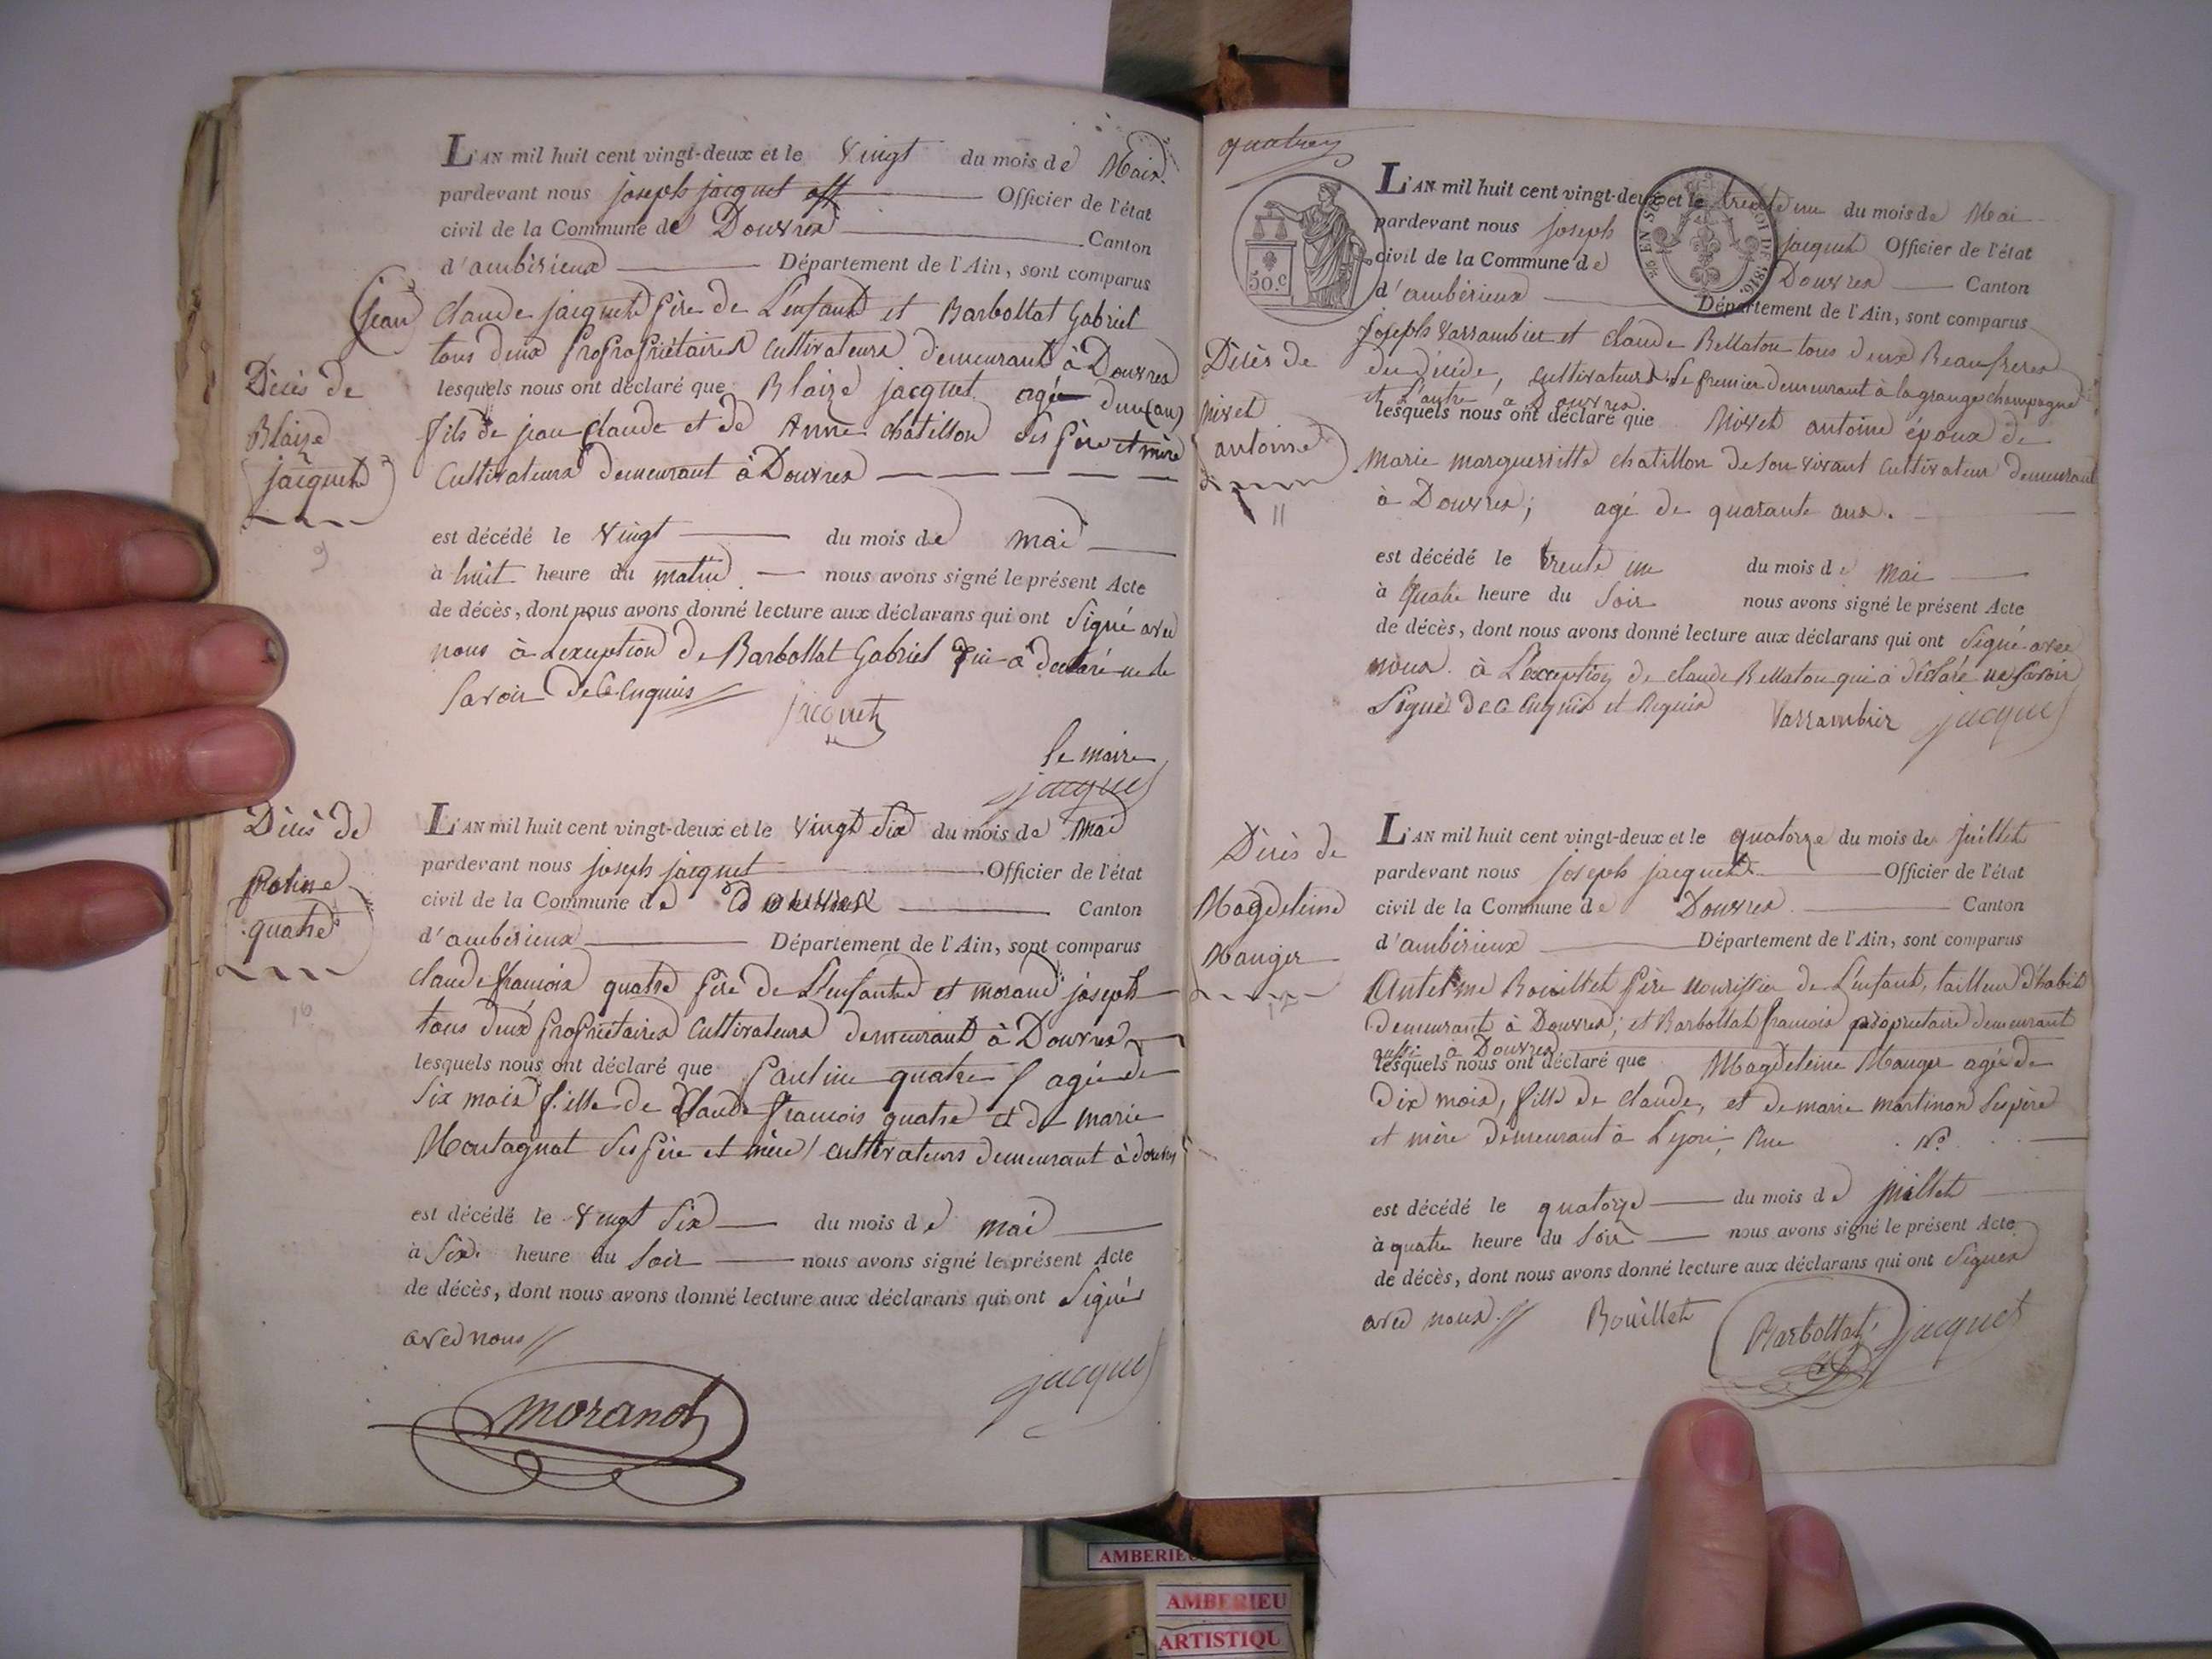 L'AN mil huit cent vingt-deux et le vingt du mois de Mai
pardevant nous joseph jacquet off Officier de l'état
civil de la Commune de Douvres Canton
d'ambérieux Département de l'Ain, sont comparus
(jean) claude jacquet père de L'enfant et Barbollat Gabriel
tous deux proproprietaires cultivateurs demeurant à Douvres
Décès de
Blaize
jacquet
9
lesquels nous ont déclaré que Blaize jacquet agé dun (an)
fils de jean claude et de Anne châtillon ses père et mère
Cultivateurs demeurant à Douvres
est décédé le vingt du mois de mai
à huit heure du matin nous avons signé le présent Acte
de décès, dont nous avons donné lecture aux déclarans qui ont Signé avec
nous à Lexeption de Barbollat Gabriel qui a declaré ne le
Savoir de ce enquis
jacquet
le maire
jacquet
Décès de
quatre
10
L'AN mil huit cent vingt-deux et le vingt Six du mois de Mai
pardevant nous joseph jacquet Officier de l'état
civil de la Commune de douvres Canton
d'ambérieux Département de l'Ain, sont comparus
claude francois quatre père de L'enfant et morand joseph
tous deux proprietaires Cultivateurs demeurant à Douvres
lesquels nous ont déclaré que Pauline quatre agée de
Six mois fille de Claude francois quatre et de marie
Montagnat Ses père et mère cultivateurs demeurant à douvres
est décédé le vingt Six du mois de mai
à Six heure du Soir nous avons signé le présent Acte
de décès, dont nous avons donné lecture aux déclarans qui ont Signés
avec nous
morand
jacquet
50.c
L'AN mil huit cent vingt-deux et le trente un du mois de Mai
pardevant nous joseph jacquet Officier de l'état
civil de la Commune de Douvres Canton
d'ambérieux Département de l'Ain, sont comparus
LOI DE 1816.
Joseph Varrambier et claude Bellaton tous deux Beaufreres
du décédé, cultivateurs le premier demeurant à la grange champagne
et L'autre à Douvres
Décès de
Nivet
antoine
11
lesquels nous ont déclaré que Nivet antoine époux de
Marie marguerittte chatillon de son vivant Cultivateur demeurant
à Douvres; agé de quarante ans.
est décédé le trente un du mois de mai
à quatre heure du Soir nous avons signé le présent Acte
de décès, dont nous avons donné lecture aux déclarans qui ont Signé avec
nous à L'exception de claude Bellaton qui à déclaré ne Savoir
Signé de ce enquis et Requis
Varrambier jacquet
Décès de
Magdeleine
Mauger
L'AN mil huit cent vingt-deux et le quatorze du mois de juillet
pardevant nous joseph jacquet Officier de l'état
civil de la Commune de Douvres Canton
d'ambérieux Département de l'Ain, sont comparus
Antelme Bouillet père nourissier de L'enfant, tailleur d'habit
demeurant à Douvres; et Barbollat francois propriétaire demeurant
aussi à Douvres
lesquels nous ont déclaré que Magdeleine Mauger agée de
Dix mois, fille de claude, et de marie martinon Ses père
et mère demeurant à Lyon, Rue N°
est décédé le quatorze du mois de juillet
à quatre heure du Soir nous avons signé le présent Acte
de décès, dont nous avons donné lecture aux déclarans qui ont Signés
avec nous.
Bouillet Barbollat jacquet
AMBERIEU
AMBERIEU
ARTISTIQU